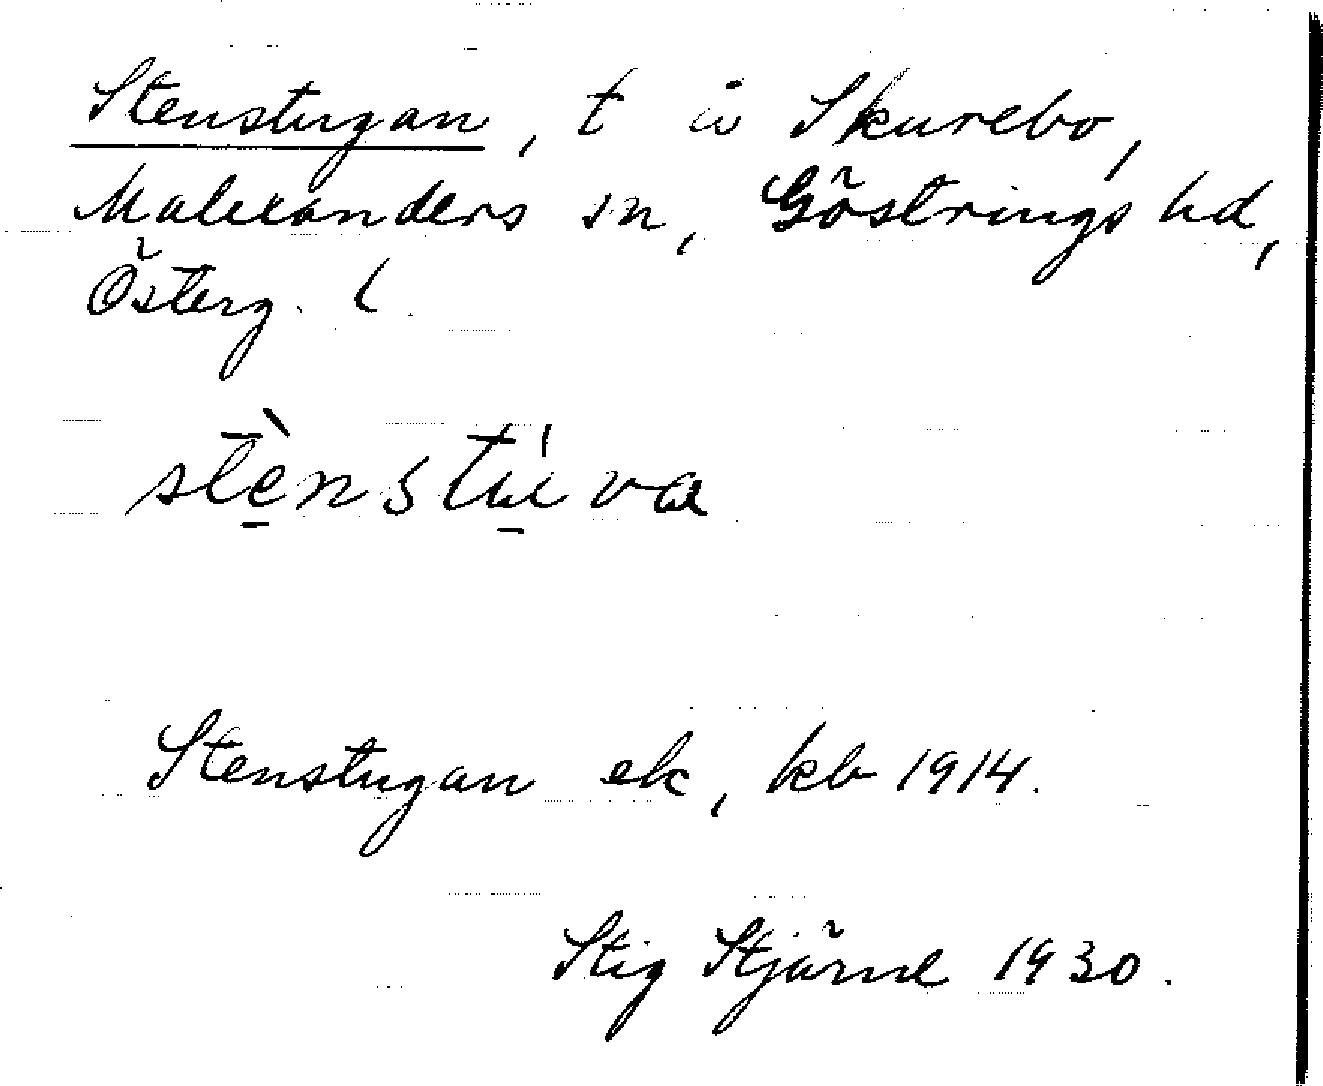 Stenstugan, t å Skurebo,
Malexanders sn, Göstrings hd,
Österg. l.
stènstúva
Stenstugan ek, kb 1914.
Stig Stjärne 1930.